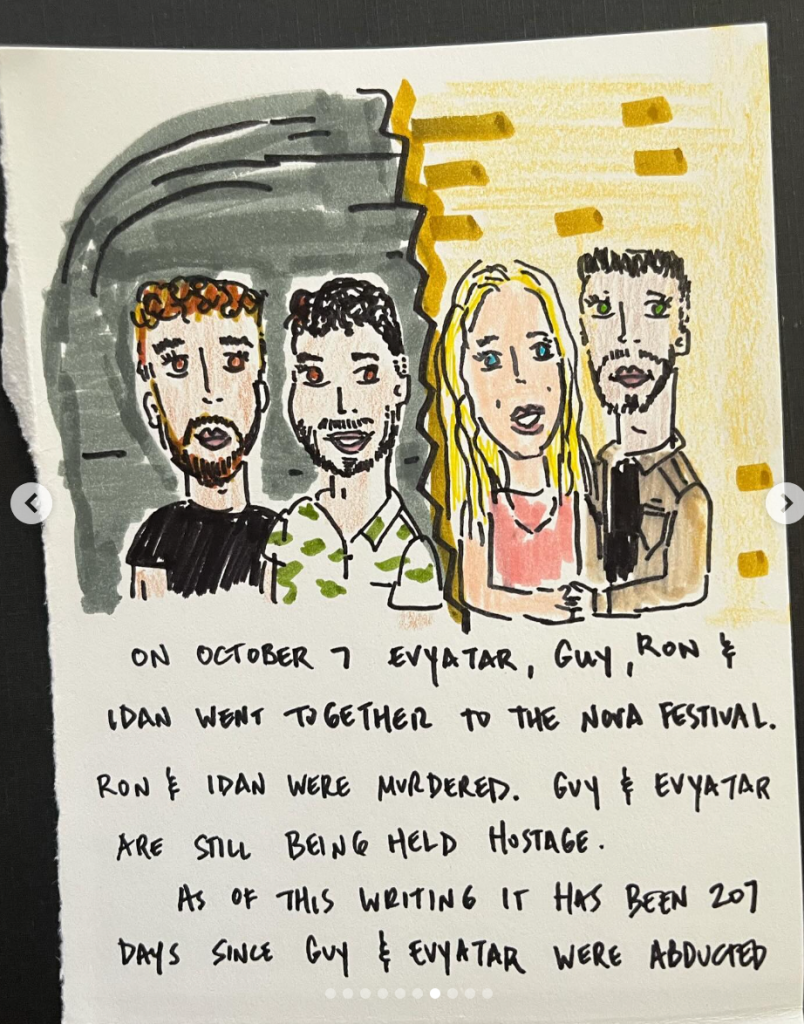 ON OCTOBER 7 EVYATAR, GUY, RON &
IDAN WENT TOGETHER TO THE NOVA FESTIVAL.
RON & IDAN WERE MURDERED. GUY & EVYATAR
ARE STILL BEING HELD HOSTAGE.
AS OF THIS WRITING IT HAS BEEN 207
DAYS SINCE GUY & EVYATAR WERE ABDUCTED